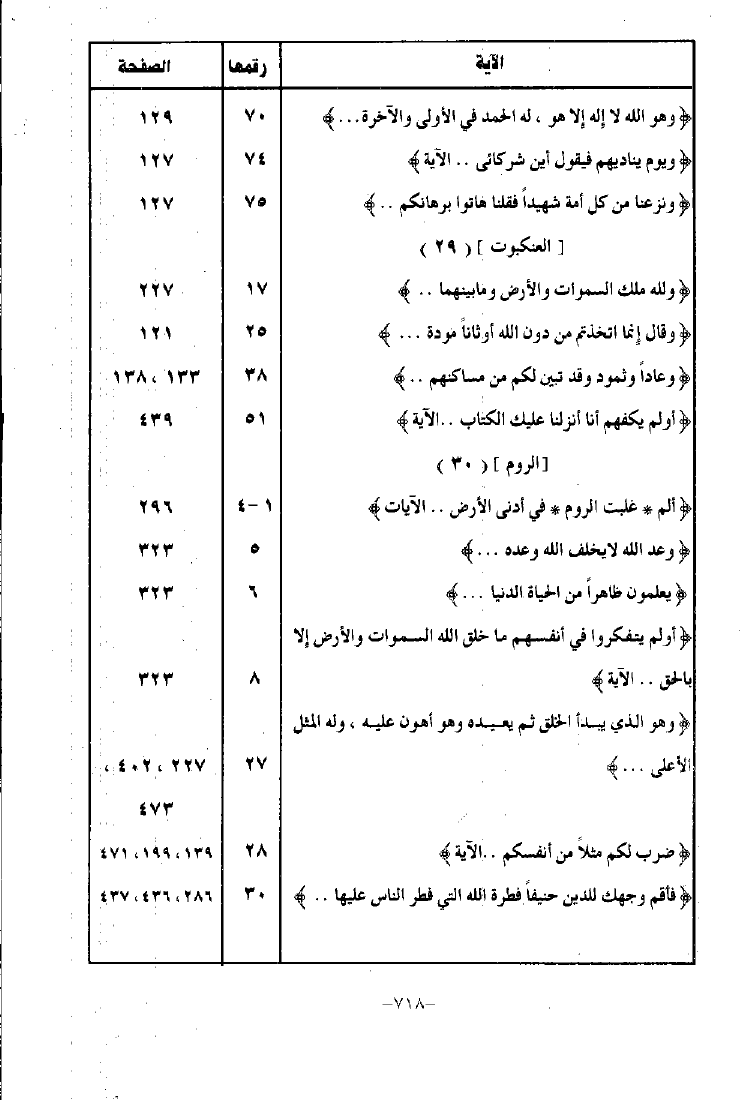 الآية رقمها الصفحة
﴿ وهو الله لا إله إلا هو ، له الحمد في الأولى والآخرة... ﴾ ٧٠ ١٢٩
﴿ ويوم يناديهم فيقول أين شركائى .. الآية ﴾ ٧٤ ١٢٧
﴿ ونزعنا من كل أمة شهيداً فقلنا هاتوا برهانكم .. ﴾ ٧٥ ١٢٧
[ العنكبوت ] ( ٢٩ )
﴿ ولله ملك السموات والأرض ومابينهما .. ﴾ ١٧ ٢٢٧
﴿ وقال إنما اتخذتم من دون الله أوثاناً مودة ... ﴾ ٢٥ ١٢١
﴿ وعاداً وثمود وقد تبين لكم من مساكنهم .. ﴾ ٣٨ ١٣٣ ، ١٣٨
﴿ أولم يكفهم أنا أنزلنا عليك الكتاب ..الآية ﴾ ٥١ ٤٣٩
[الروم ] ( ٣٠ )
﴿ ألم * غلبت الروم * في أدنى الأرض .. الآيات ﴾ ١-٤ ٢٩٦
﴿ وعد الله لايخلف الله وعده ... ﴾ ٥ ٣٢٣
﴿ يعلمون ظاهراً من الحياة الدنيا ... ﴾ ٦ ٣٢٣
﴿ أولم يتفكروا في أنفسهم ما خلق الله السموات والأرض إلا
بالحق .. الآية ﴾ ٨ ٣٢٣
﴿ وهو الذي يبدأ الخلق ثم يعيده وهو أهون عليه ، وله المثل
الأعلى ... ﴾ ٢٧ ٢٢٧ ، ٤٠٢ ،
٤٧٣
﴿ ضرب لكم مثلاً من أنفسكم ..الآية ﴾ ٢٨ ١٣٩ ، ١٩٩ ، ٤٧١
﴿ فأقم وجهك للدين حنيفاً فطرة الله التي فطر الناس عليها .. ﴾ ٣٠ ٢٨٦ ، ٤٣٦ ، ٤٣٧
–٧١٨–